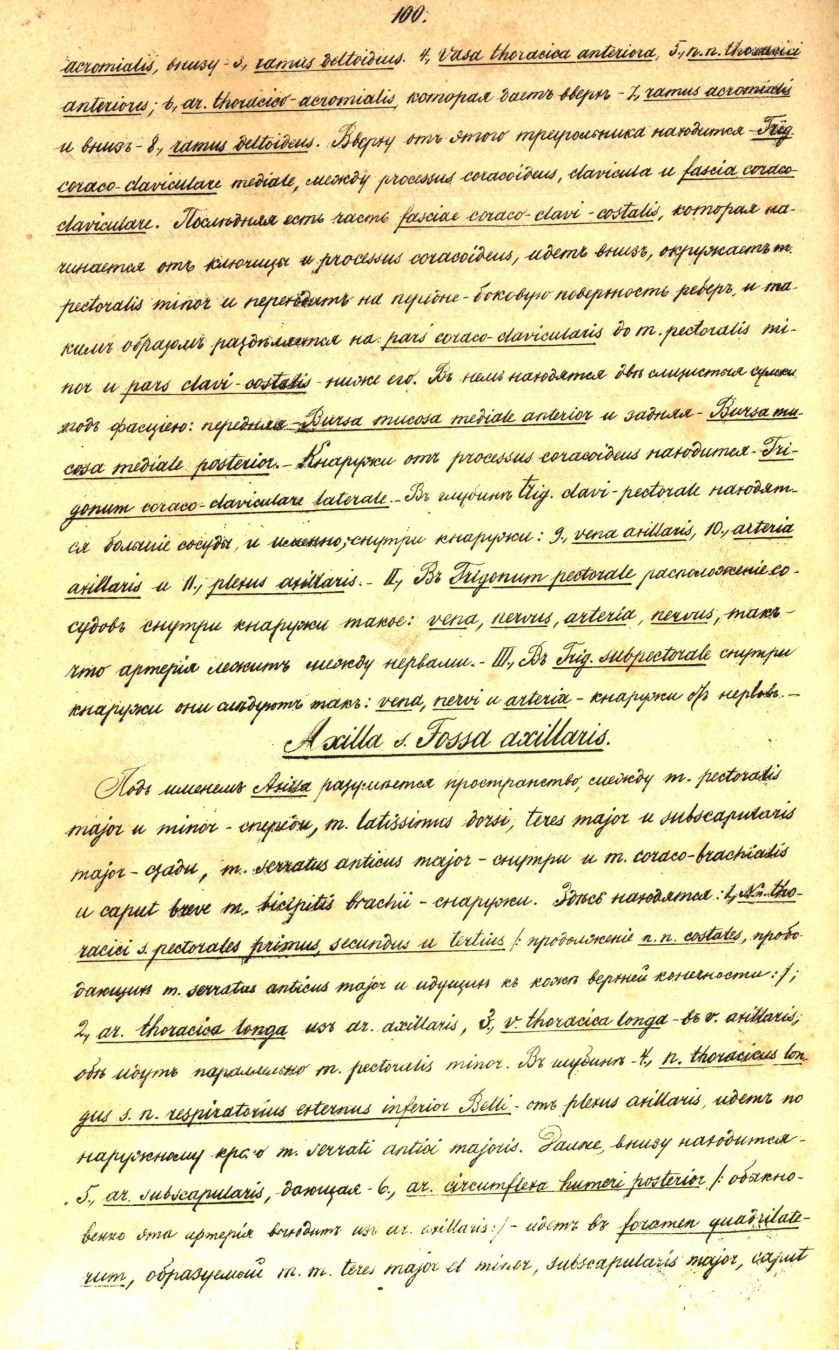 100.
acromialis, внизу - 3, ramus deltoidius. 4, Vasa thoracica anteriora, 5, n.n. thoracici
anteriores; 6, ar. thoracico-acromialis, которая даетъ вверхъ - 7, ramus acromialis
и внизъ - 8, ramus deltoideus. Вверху отъ этого треугольника находится - Trig.
coraco-claviculare mediale, между processus coracoideus, clavicula и fascia coraco-
claviculare. Послѣдняя есть часть fasciae coraco-clavi-costalis, которая на-
чинается отъ ключицы и processus coracoideus, идетъ внизъ, окружаетъ m.
pectoralis minor и переходитъ на передне-боковую поверхность реберъ, и та-
кимъ образомъ раздѣляется на pars coraco-clavicularis до m. pectoralis mi-
nor и pars clavi-costalis - ниже его. Въ немъ находятся двѣ слизистыя сумки
подъ фасціею: передняя - Bursa mucosa mediale anterior и задняя - Bursa mu-
cosa mediale posterior. - Кнаружи отъ processus coracoideus находится - Tri-
gonum coraco-claviculare laterale. - Въ глубинѣ trig. clavi-pectorale находят-
ся большіе сосуды, и именно, снутри кнаружи: 9, vena axillaris, 10, arteria
axillaris и 11, plexus axillaris. - II, Въ Trigonum pectorale расположеніе со-
судовъ снутри кнаружи такое: vena, nervus, arteria, nervus, такъ -
что артерія лежитъ между нервами. - III, Въ Trig. subpectorale снутри
кнаружи они слѣдуютъ такъ: vena, nervi и arteria - кнаружи отъ нервовъ. -
Axilla s. Fossa axillaris.
Подъ именемъ Axilla разумѣется пространство, между m. pectoralis
major и minor - спереди, m. latissimus dorsi, teres major и subscapularis
major - сзади, m. serratus anticus major - снутри и m. coraco-brachialis
и caput breve m. bicipitis brachii - снаружи. Здѣсь находятся: 1, Nn. tho-
racici s. pectorales primus, secundus и tertius /: продолженіе n.n. costales, пробо-
дающихъ m. serratus anticus major и идущихъ къ кожѣ верхней конечности :/;
2, ar. thoracica longa изъ ar. axillaris, 3, v. thoracica longa - въ v. axillaris;
обѣ идутъ параллельно m. pectoralis minor. Въ глубинѣ - 4, n. thoracicus lon-
gus s. n. respiratorius externus inferior Belli - отъ plexus axillaris, идетъ по
наружному краю m. serrati antici majoris. Далѣе, внизу находится -
5, ar. subscapularis, дающая - 6, ar. circumflexa humeri posterior /: обыкно-
венно эта артерія выходитъ изъ ar. axillaris :/ - идетъ въ foramen quadrilate-
rum, образуемый m. m. teres major et minor, subscapularis major, caput